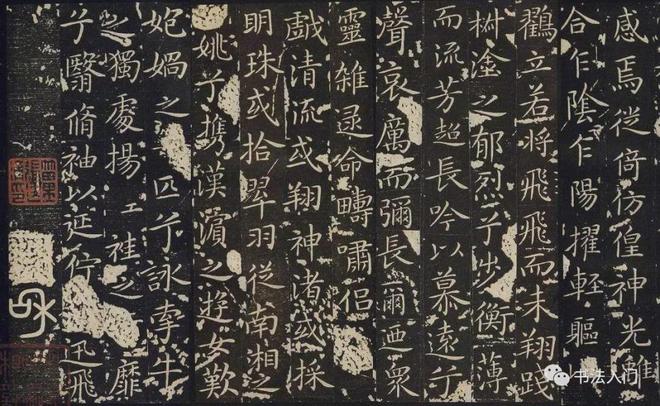 感焉徙倚彷徨神光離
合乍陰乍陽擢輕軀
鶴立若將飛飛而未翔踐
椒塗之郁烈兮步衡薄
而流芳超長吟以慕遠兮
聲哀厲而彌長爾迺眾
靈雜遝命疇嘯侶
戲清流或翔神渚或採
明珠或拾翠羽從南湘之
姚兮攜漢濱之遊女歎
妃媧之匹兮詠牽牛
之獨處揚袿之靡
兮翳脩袖以延佇迅飛
书法入门